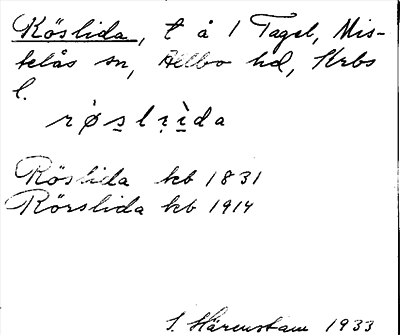 Röslida, t å 1 Tagel, Mis-
telås sn, Allbo hd, Krbs
l.
røslìda
Röslida kb 1831
Rörslida kb 1914
S. Härenstam 1933